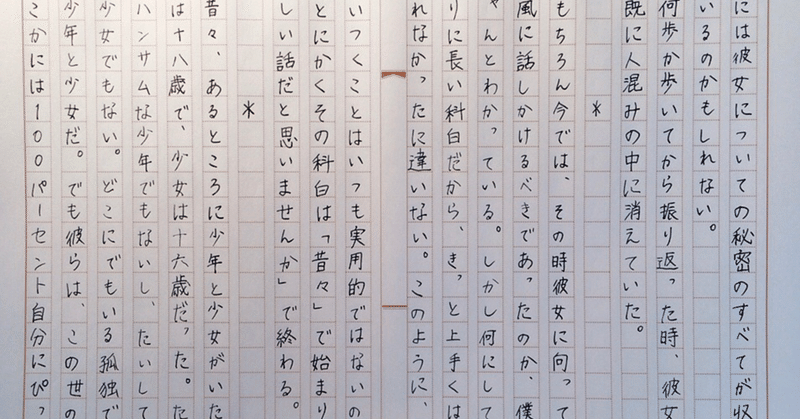 には彼女についての秘密のすべてが収
いるのかもしれない。
何歩か歩いてから振り返った時、彼女
既に人混みの中に消えていた。
*
もちろん今では、その時彼女に向って
風に話しかけるべきであったのか、僕
ゃんとわかっている。しかし何にして
りに長い科白だから、きっと上手くは
れなかったに違いない。このように、
いつくことはいつも実用的ではないの
とにかくその科白は「昔々」で始まり
しい話だと思いませんか」で終わる。
*
昔々、あるところに少年と少女がいた
は十八歳で、少女は十六歳だった。た
ハンサムな少年でもないし、たいして
少女でもない。どこにでもいる孤独で
少年と少女だ。でも彼らは、この世の
こかには100パーセント自分にぴっ